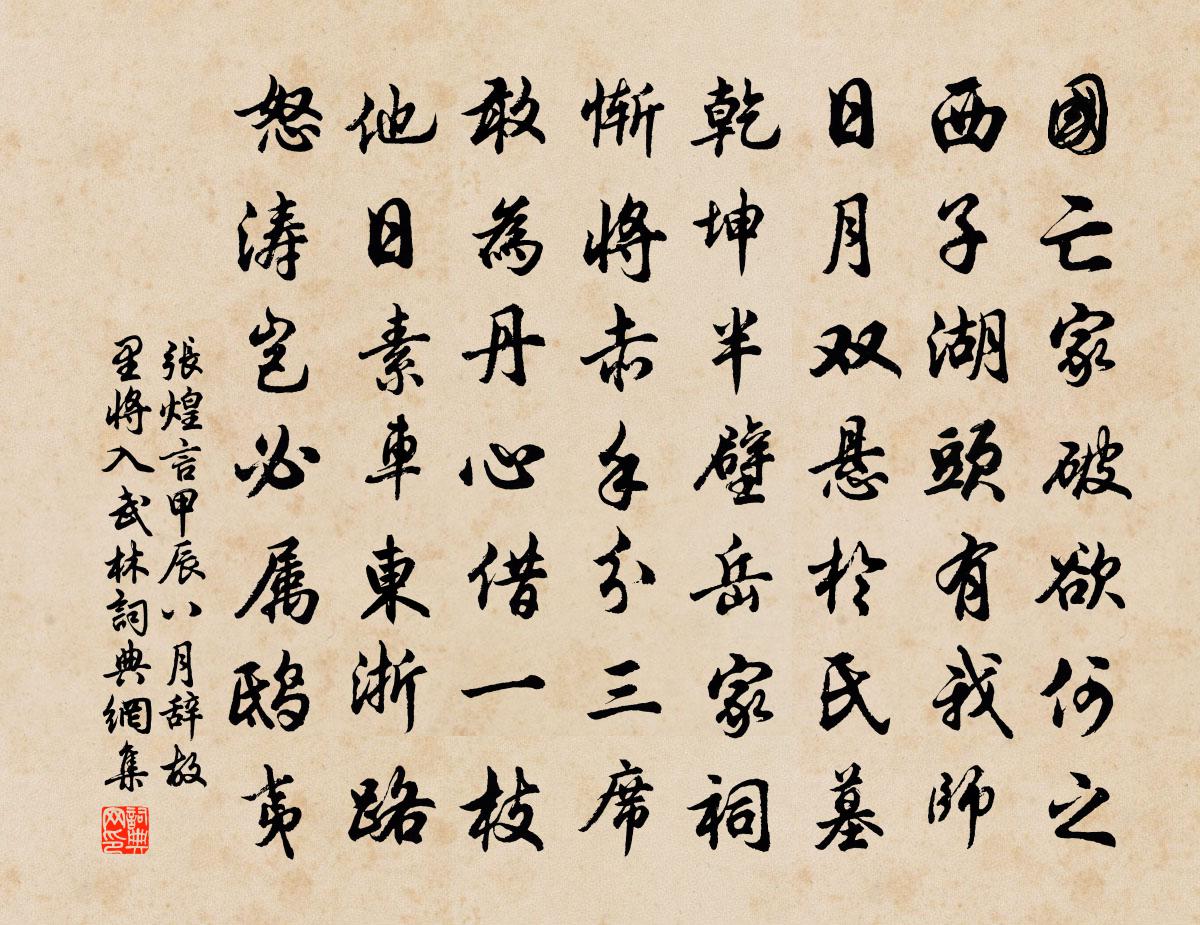 國亡家破欲何之
西子湖頭有我師
日月双悬於氏墓
乾坤半壁岳家祠
惭將赤手分三席
敢為丹心借一枝
他日素車東浙路
怒涛岂必属鸱夷
張煌言甲辰八月辞故
里將入武林詞典網集
詞典
网印